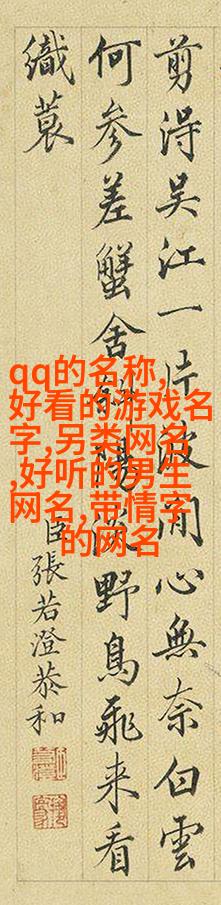 剪淂吴江一片波閒心無奈白雲
何参差蟹舍斜陽野鳥飛来看
織蓑
臣張若澄恭和
qq的名称,
好看的游戏名
字,另类网名
,好听的男生
网名,带情字
的网名